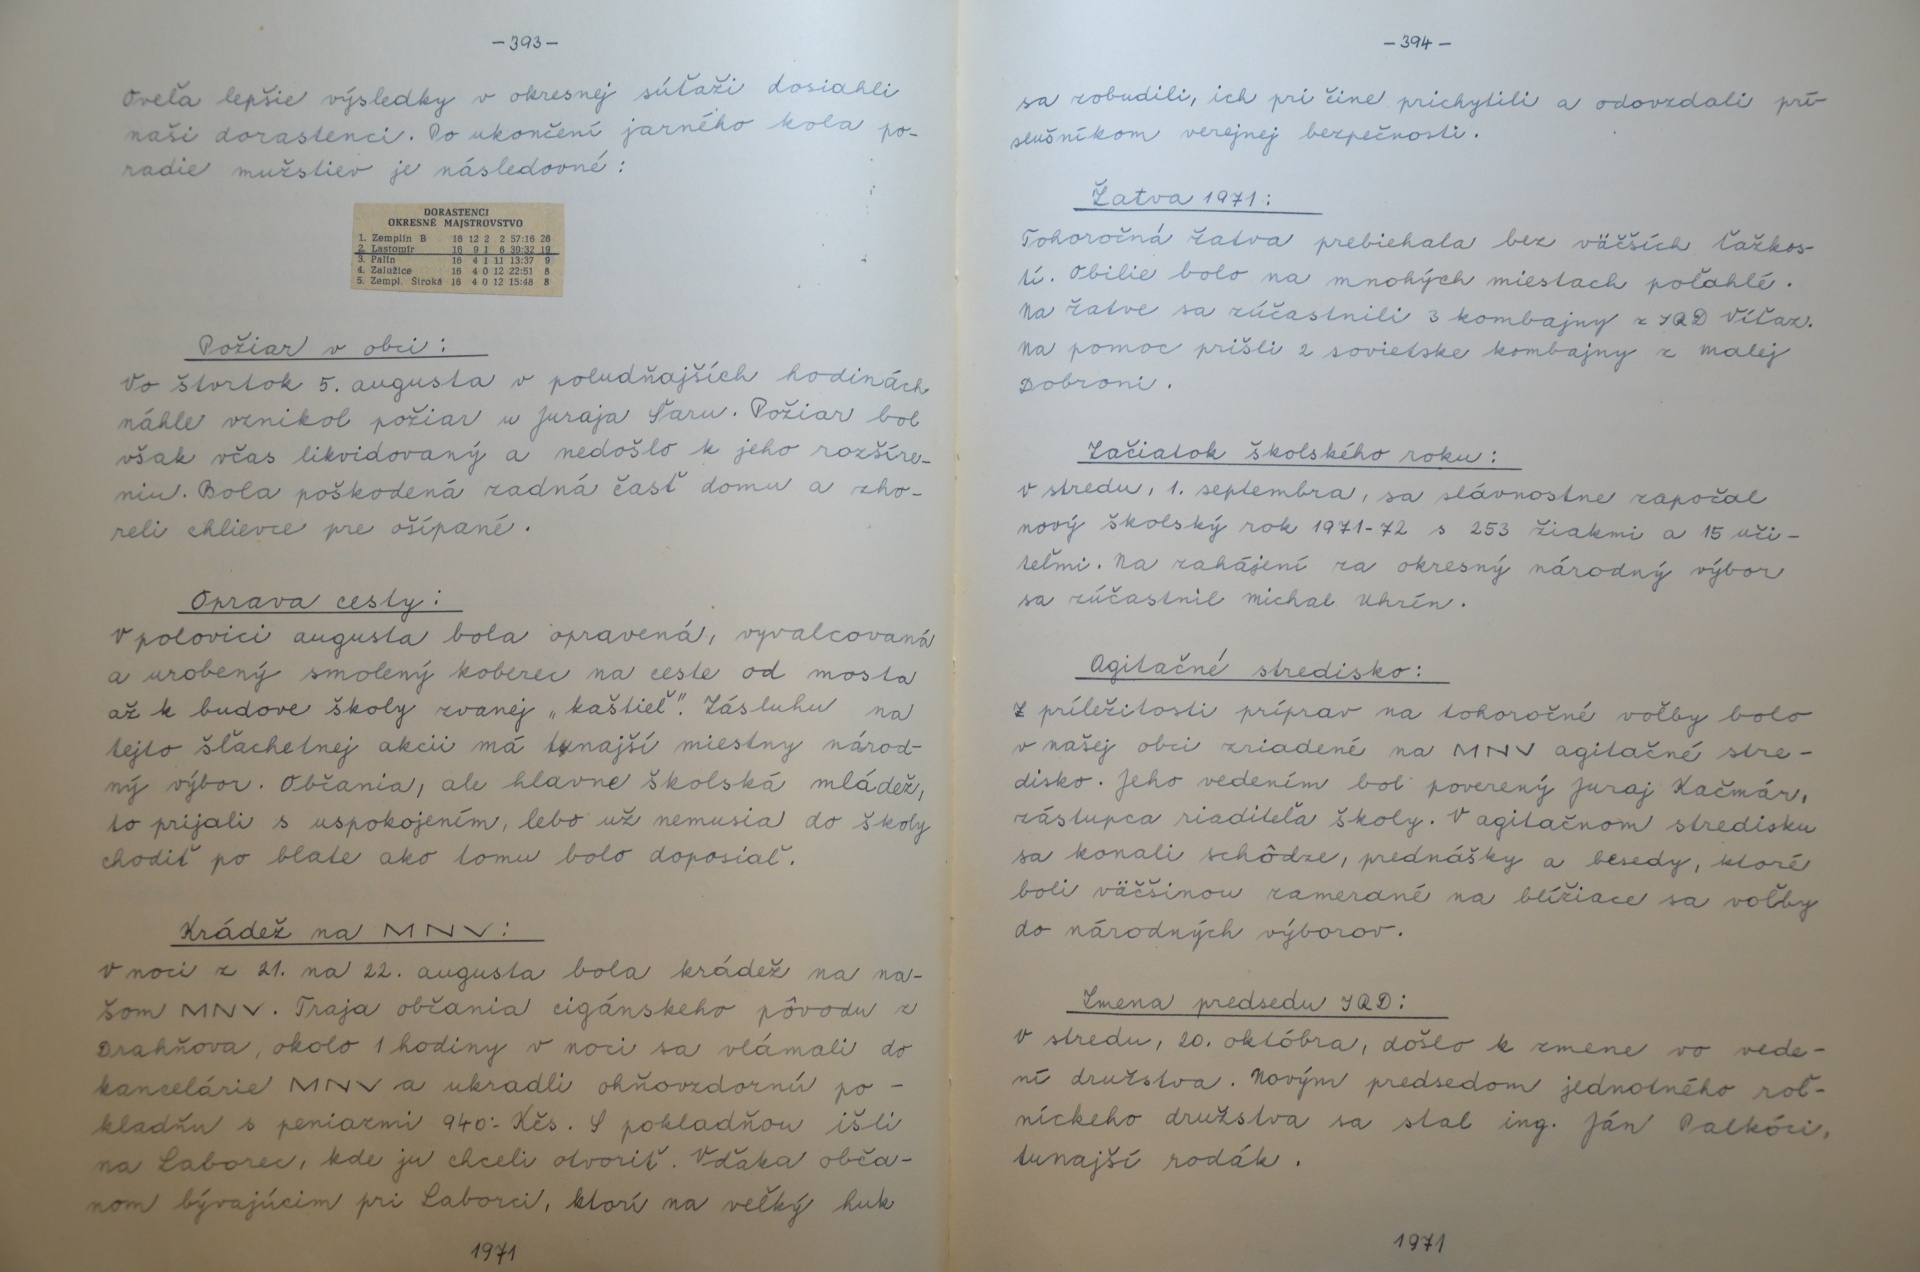 -393-
Oveľa lepšie výsledky v okresnej súťaži dosiahli
naši dorastenci. Po ukončení jarného kola po-
radie mužstiev je následovné:
DORASTENCI
OKRESNÉ MAJSTROVSTVO
1. Zemplín B 16 12 2 2 57:16 26
2. Lastomír 16 9 1 6 39:32 19
3. Palín 16 4 1 11 13:37 9
4. Zalužice 16 4 0 12 22:51 8
5. Zempl. Široká 16 4 0 12 15:48 8
Požiar v obci:
Vo štvrtok 5. augusta v poludňajších hodinách
náhle vznikol požiar u Juraja Šaru. Požiar bol
však včas likvidovaný a nedošlo k jeho rozšíre-
niu. Bola poškodená zadná časť domu a zho-
reli chlievce pre ošípané.
Oprava cesty:
V polovici augusta bola opravená, vyvalcovaná
a urobený smolený koberec na ceste od mosta
až k budove školy zvanej „kaštieľ". Zásluhu na
tejto šľachetnej akcii má tunajší miestny národ-
ný výbor. Občania, ale hlavne školská mládež,
to prijali s uspokojením, lebo už nemusia do školy
chodiť po blate ako tomu bolo doposiaľ.
Krádež na MNV:
V noci z 21. na 22. augusta bola krádež na na-
šom MNV. Traja občania cigánskeho pôvodu z
Drahňova, okolo 1 hodiny v noci sa vlámali do
kancelárie MNV a ukradli ohňovzdornú po-
kladňu s peniazmi 940.- Kčs. S pokladňou išli
na Laborec, kde ju chceli otvoriť. Vďaka obča-
nom bývajúcim pri Laborci, ktorí na veľký huk
1971
-394-
sa zobudili, ich pri čine prichytili a odovzdali prí-
slušníkom verejnej bezpečnosti.
Žatva 1971:
Tohoročná žatva prebiehala bez väčších ťažkos-
tí. Obilie bolo na mnohých miestach poľahlé.
Na žatve sa zúčastnili 3 kombajny z JRD Víťaz.
Na pomoc prišli 2 sovietske kombajny z Malej
Dobroni.
Začiatok školského roku:
V stredu, 1. septembra, sa slávnostne započal
nový školský rok 1971-72 s 253 žiakmi a 15 uči-
teľmi. Na zahájení za okresný národný výbor
sa zúčastnil Michal Uhrín.
Agitačné stredisko:
Z príležitosti príprav na tohoročné voľby bolo
v našej obci zriadené na MNV agitačné stre-
disko. Jeho vedením bol poverený Juraj Kačmár,
zástupca riaditeľa školy. V agitačnom stredisku
sa konali schôdze, prednášky a besedy, ktoré
boli väčšinou zamerané na blížiace sa voľby
do národných výborov.
Zmena predsedu JRD:
V stredu, 20. októbra, došlo k zmene vo vede-
ní družstva. Novým predsedom jednotného roľ-
níckeho družstva sa stal ing. Ján Palkóci,
tunajší rodák.
1971